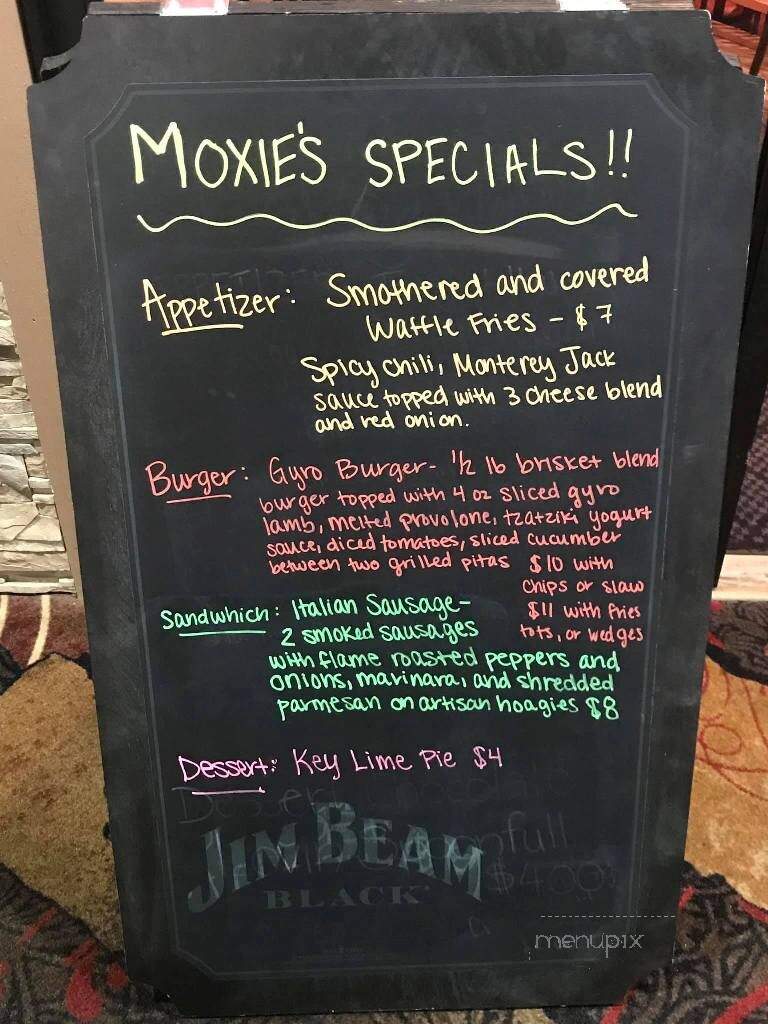 MOXIE'S SPECIALS!!
Appetizer: Smothered and covered
Waffle Fries - $7
Spicy chili, Monterey Jack
sauce topped with 3 cheese blend
and red onion.
Burger: Gyro Burger- 1/2 lb brisket blend
burger topped with 4 oz sliced gyro
lamb, melted provolone, tzatziki yogurt
sauce, diced tomatoes, sliced cucumber
between two grilled pitas $10 with
chips or slaw
$11 with fries
tots, or wedges
Sandwhich: Italian Sausage-
2 smoked sausages
with flame roasted peppers and
onions, marinara, and shredded
parmesan on artisan hoagies $8
Dessert: Key Lime Pie $4
Dessert
full
$4.00
JIM BEAM
BLACK
menupix